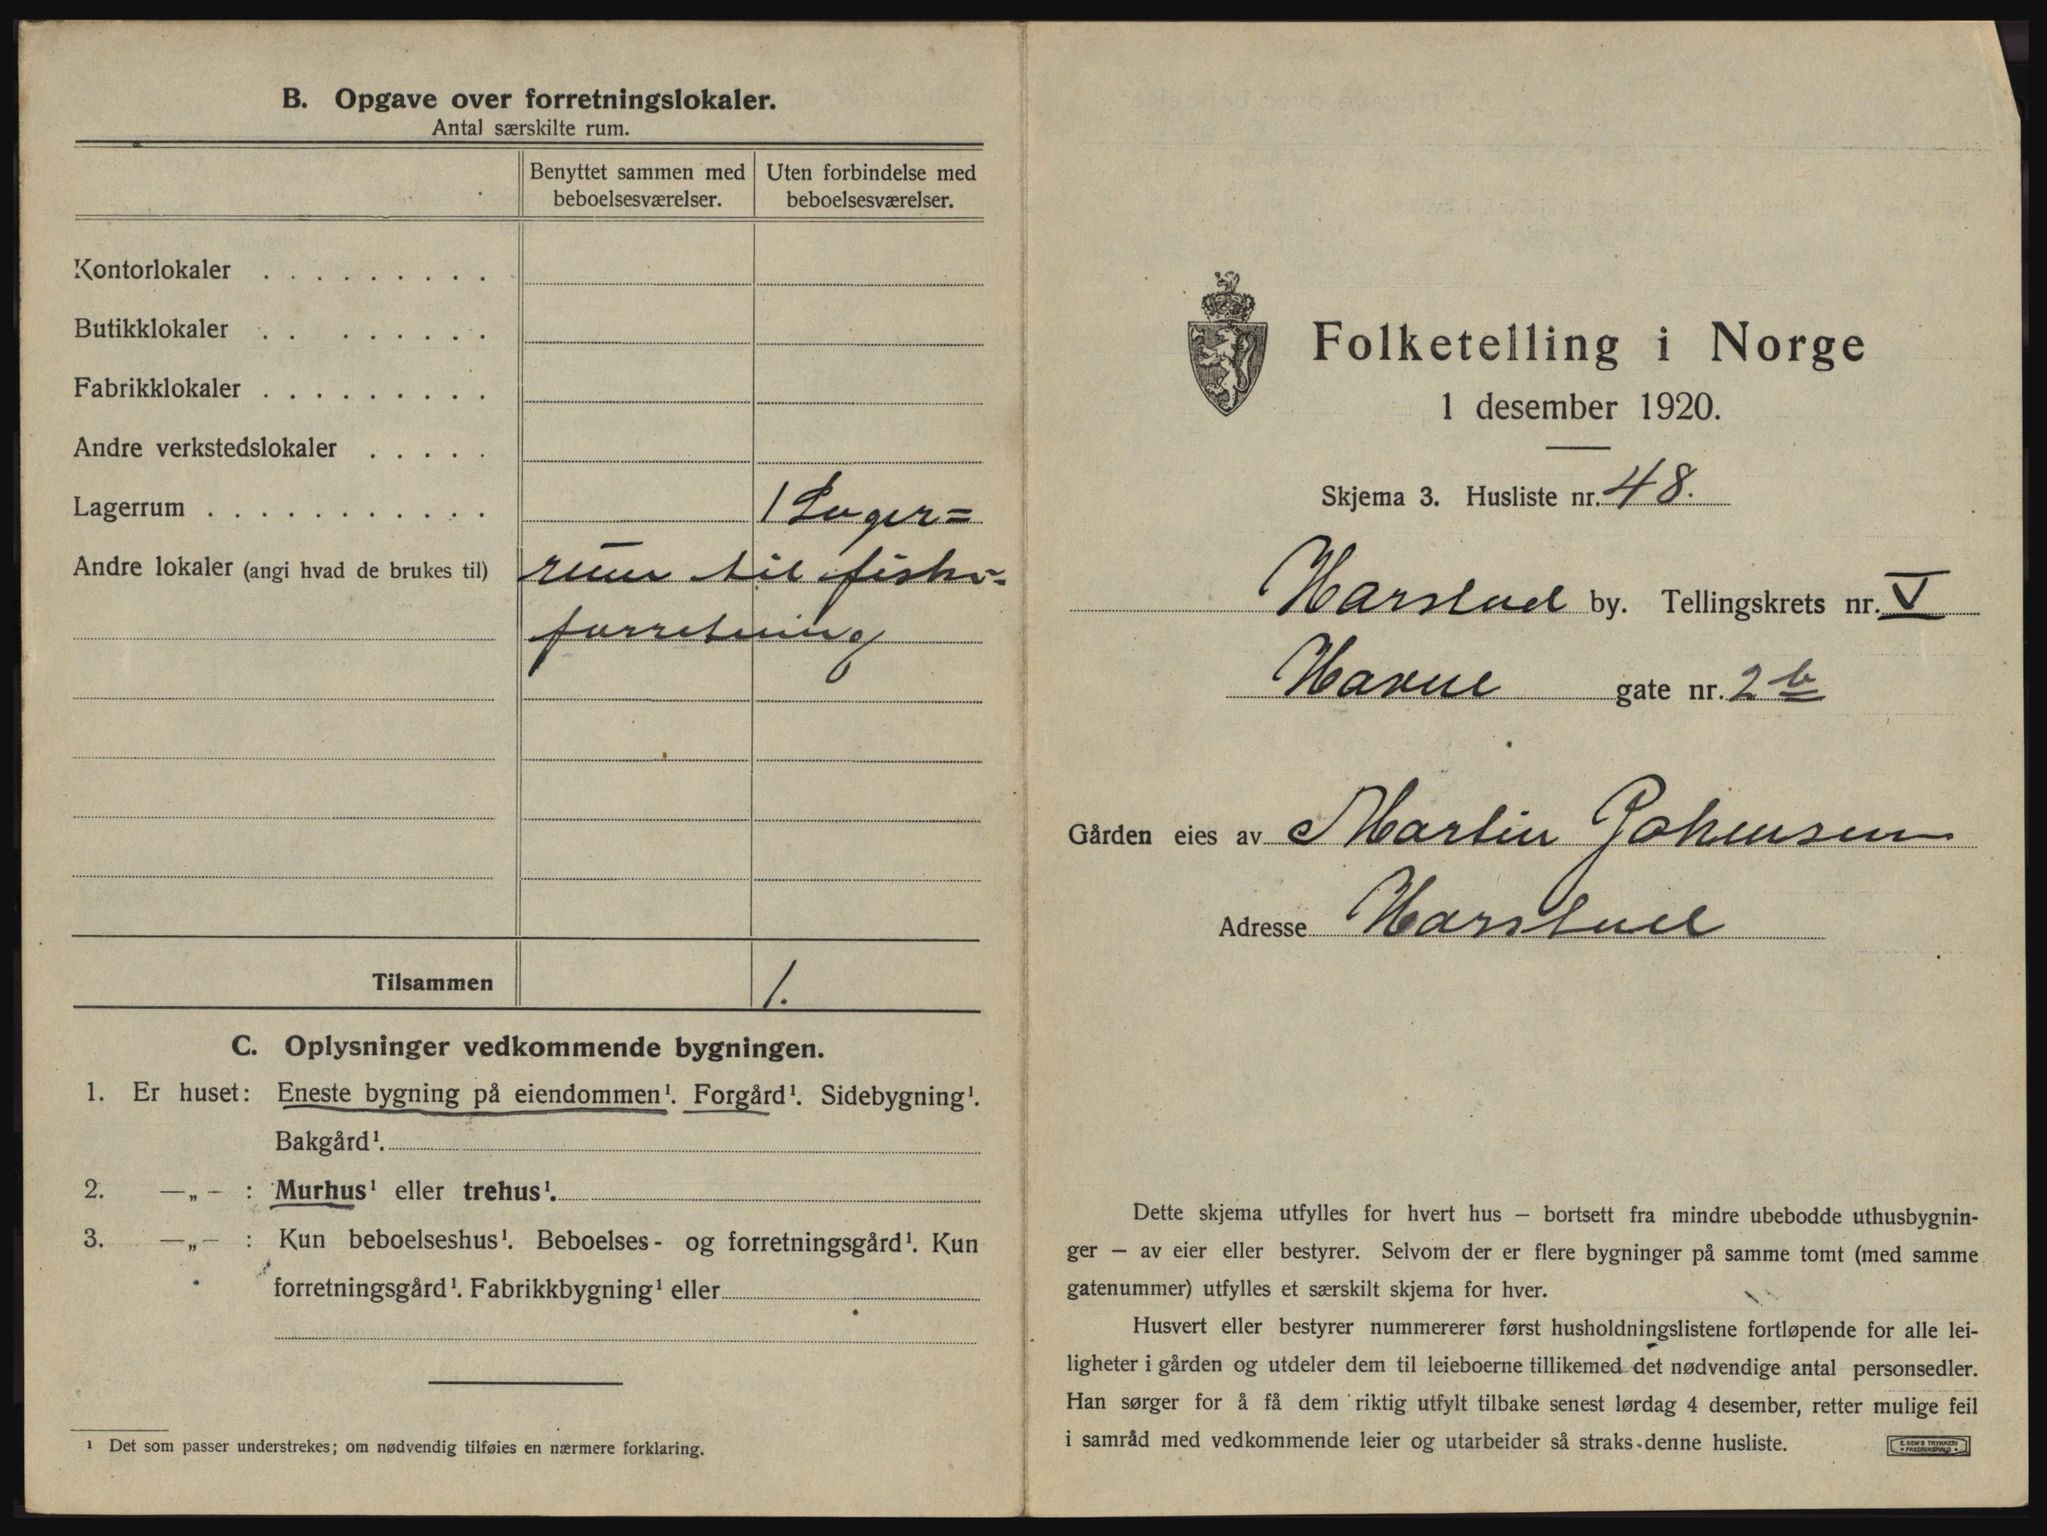 B. Opgave over forretningslokaler.
Antal særskilte rum.
Benyttet sammen med beboelsesværelser.
Uten forbindelse med beboelsesværelser.
Kontorlokaler . . . . . . . . .
Butikklokaler . . . . . . . .
Fabrikklokaler . . . . . . . . .
Andre verkstedslokaler . . . . .
Lagerrum . . . . . . . . . . . 1 Lager=
Andre lokaler (angi hvad de brukes til) rum til fiske-
forretning
Tilsammen 1.
C. Oplysninger vedkommende bygningen.
1. Er huset: Eneste bygning på eiendommen¹. Forgård¹. Sidebygning¹.
Bakgård¹.
2. —„– : Murhus¹ eller trehus¹.
3. —„– : Kun beboelseshus¹. Beboelses- og forretningsgård¹. Kun
forretningsgård¹. Fabrikkbygning¹ eller
¹ Det som passer understrekes; om nødvendig tilføies en nærmere forklaring.
Folketelling i Norge
1 desember 1920.
Skjema 3. Husliste nr. 48.
Harstad by. Tellingskrets nr. V
Havne gate nr. 2 b
Gården eies av Martin Johensen
Adresse Harstad
Dette skjema utfylles for hvert hus – bortsett fra mindre ubebodde uthusbygnin-
ger – av eier eller bestyrer. Selvom der er flere bygninger på samme tomt (med samme
gatenummer) utfylles et særskilt skjema for hver.
Husvert eller bestyrer nummererer først husholdningslistene fortløpende for alle lei-
ligheter i gården og utdeler dem til leieboerne tillikemed det nødvendige antal personsedler.
Han sørger for å få dem riktig utfylt tilbake senest lørdag 4 desember, retter mulige feil
i samråd med vedkommende leier og utarbeider så straks denne husliste.
E. SEM'S TRYKKERI
FREDRIKSHALD